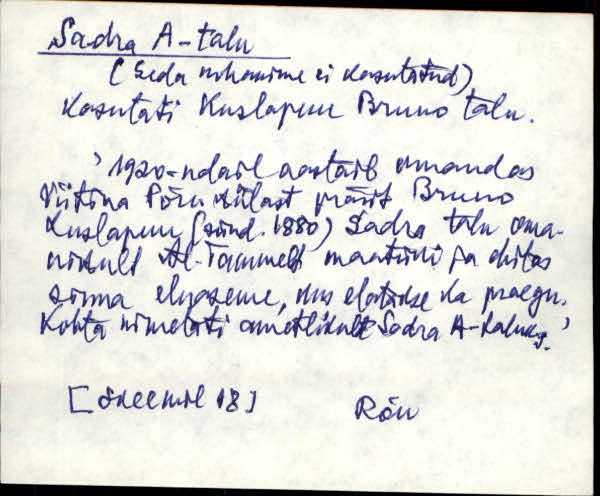 Sadra A-talu
(Seda kohanime ei kasutatud)
Kasutati Kuslapuu Bruno talu.
' 1920-ndail aastail omandas
Viitina Põru külast pärit Bruno
Kuslapuu (sünd. 1880) Sadra talu oma-
nikult Al. Tammelt maatüki ja ehitas
sinna eluaseme, kus elatakse ka praegu.
Kohta nimetati ametlikult Sadra A-taluks.'
18]
Rõu